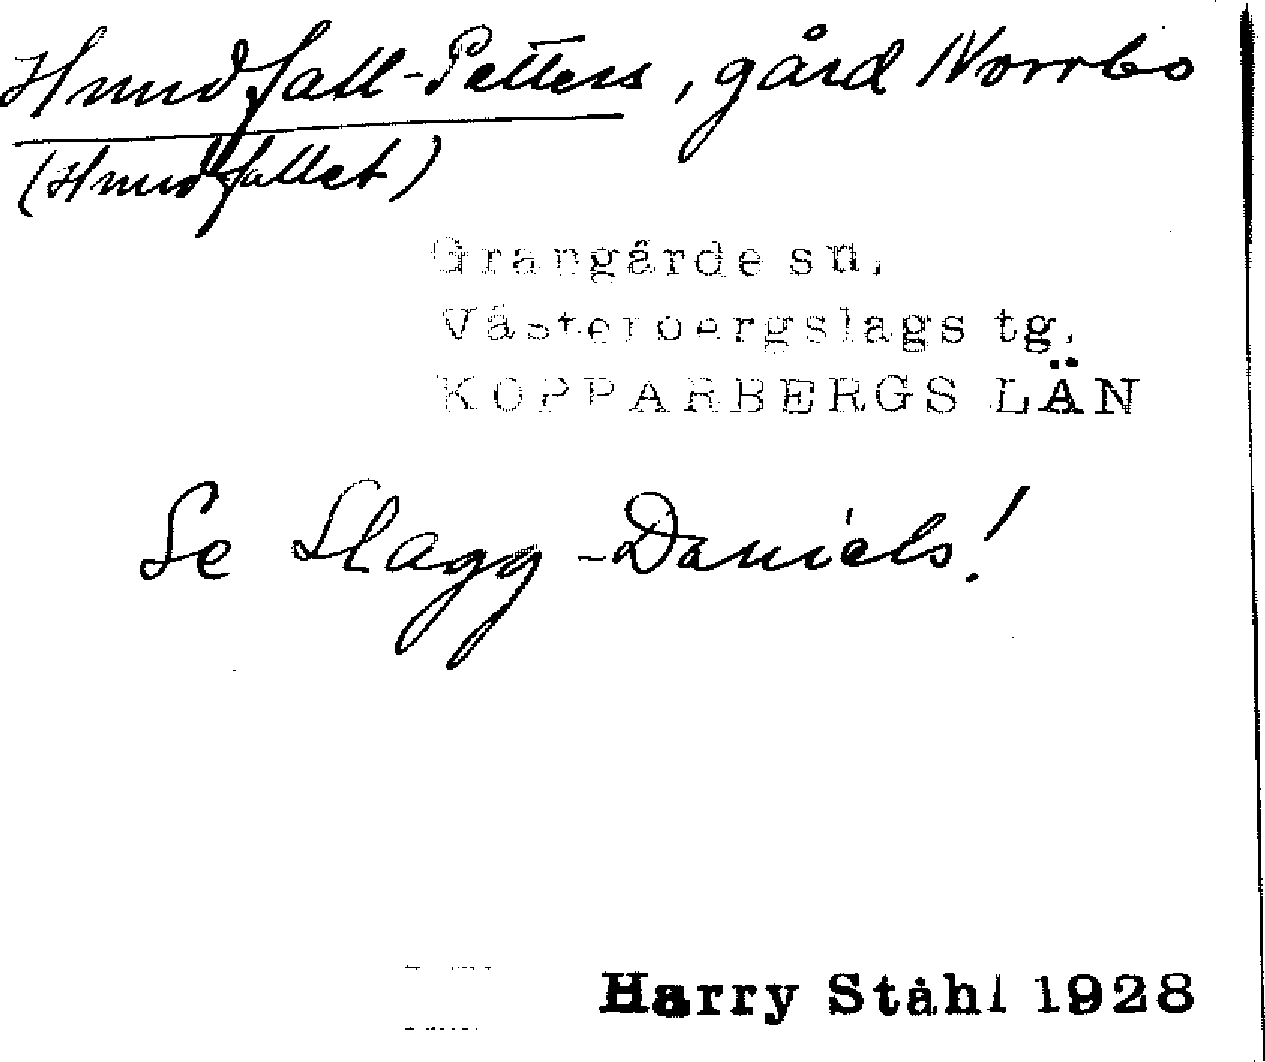 Hundfall-Petters, gård Norrbo
(Hundfallet)
Grangärde sn.
Västerbergslags tg.
KOPPARBERGS LÄN
Se Slagg-Daniels!
Harry Ståhl 1928